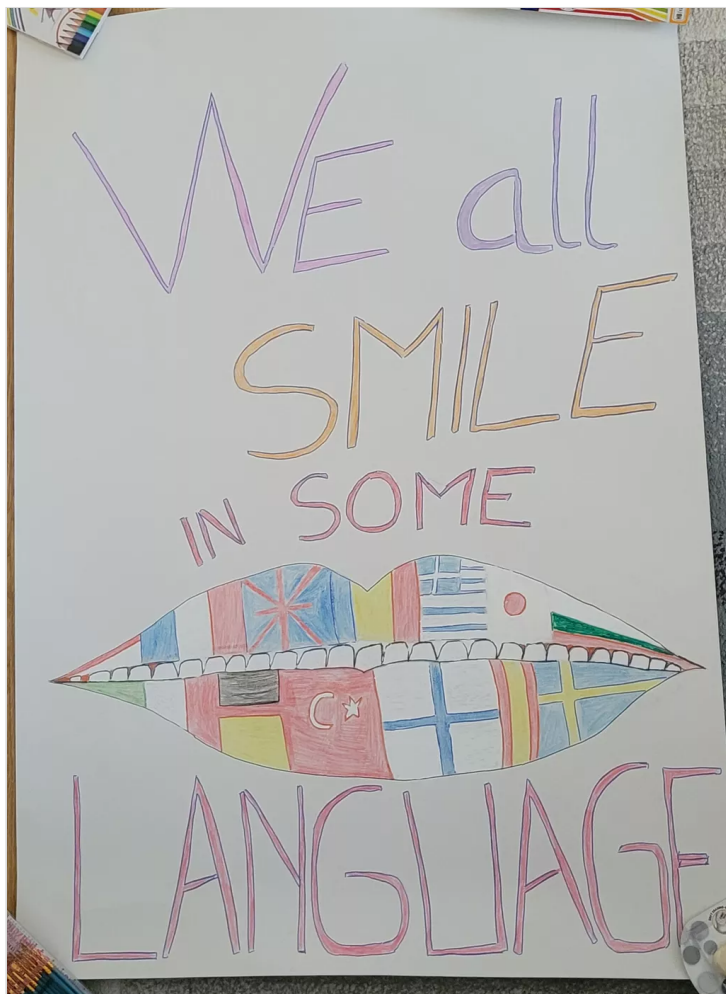 WE all
SMILE
IN SOME
LANGUAGE